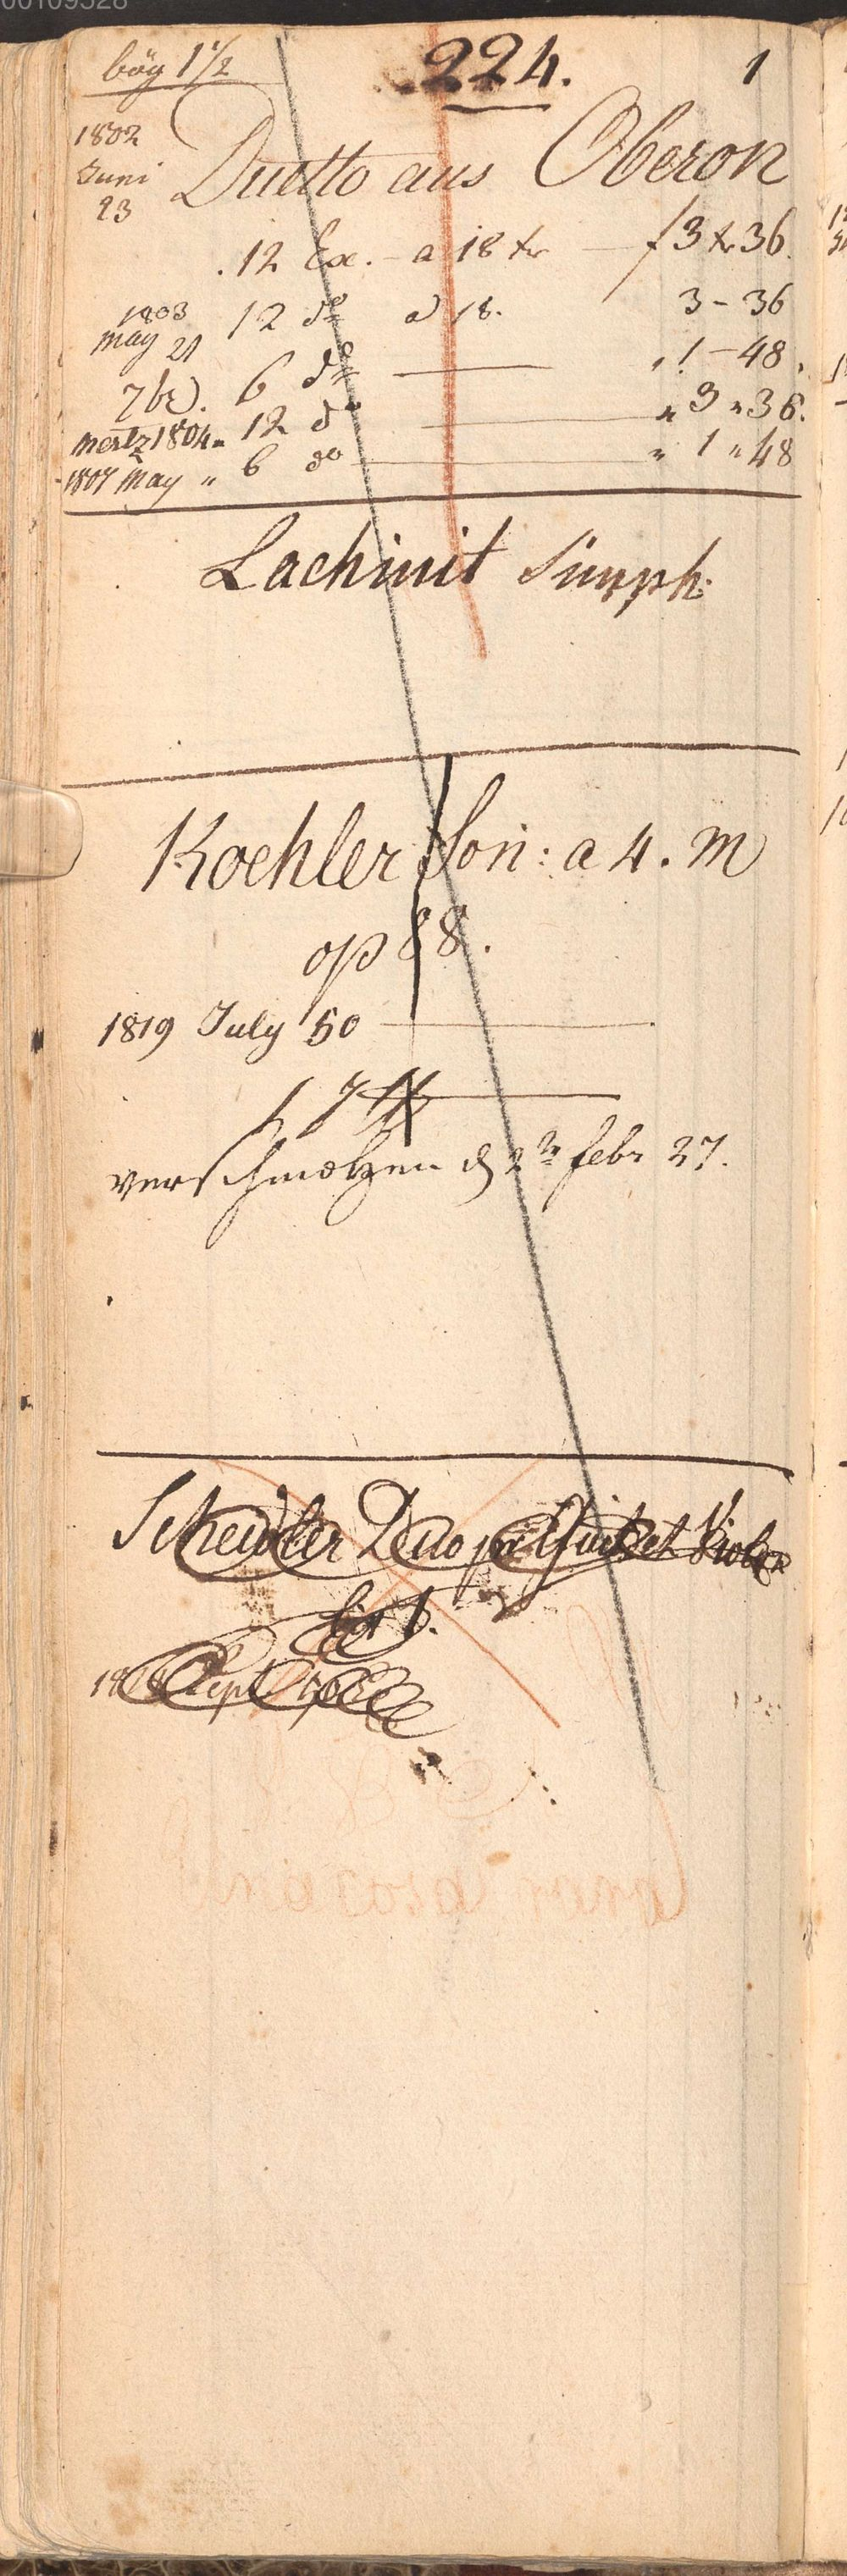 00109528
bög 1½ 224. 1
1802
Juni
23
Duetto aus Oberon
12 Ex. a 18 xr — f 3 xr 36.
1803
May 21 12 do a 18. 3-36
7br. 6 do — " 1-48.
Mertz 1804 " 12 do — " 3 " 36.
1807 May " 6 do — " 1 " 48
Lachinit Simph:
Koehler Son: a 4. M
op 88.
1819 July 50 —
verschmolzen d 23 febr 27.
Scheidler Duo pr Guit et Violon
Sept.